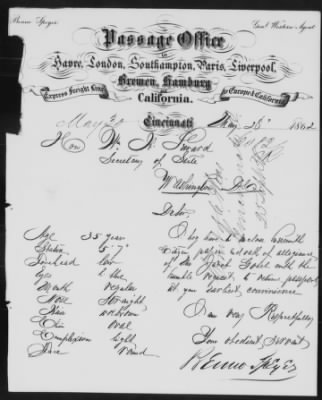 Benno Speyer
Genl Western Agent
Passage Office
to
Havre, London, Southampton, Paris, Liverpool,
Bremen, Hamburg
and
California.
Express Freight Line
to Europe & California
Cincinnati May 26 1862
Hon Wm H Seward
Secretary of State
Washington
D Sir
I beg here to enclose herewith
oath of allegiance
of Mr
with the
humble request to return passport
at your earliest convenience
I am very Respectfully
Your obedient Servant
Benno Speyer
Age 35 year
Statur 5' 7"
Forehead low
Eyes blue
Mouth regular
Nose straight
Hair
Chin oval
Complexion light
Face round